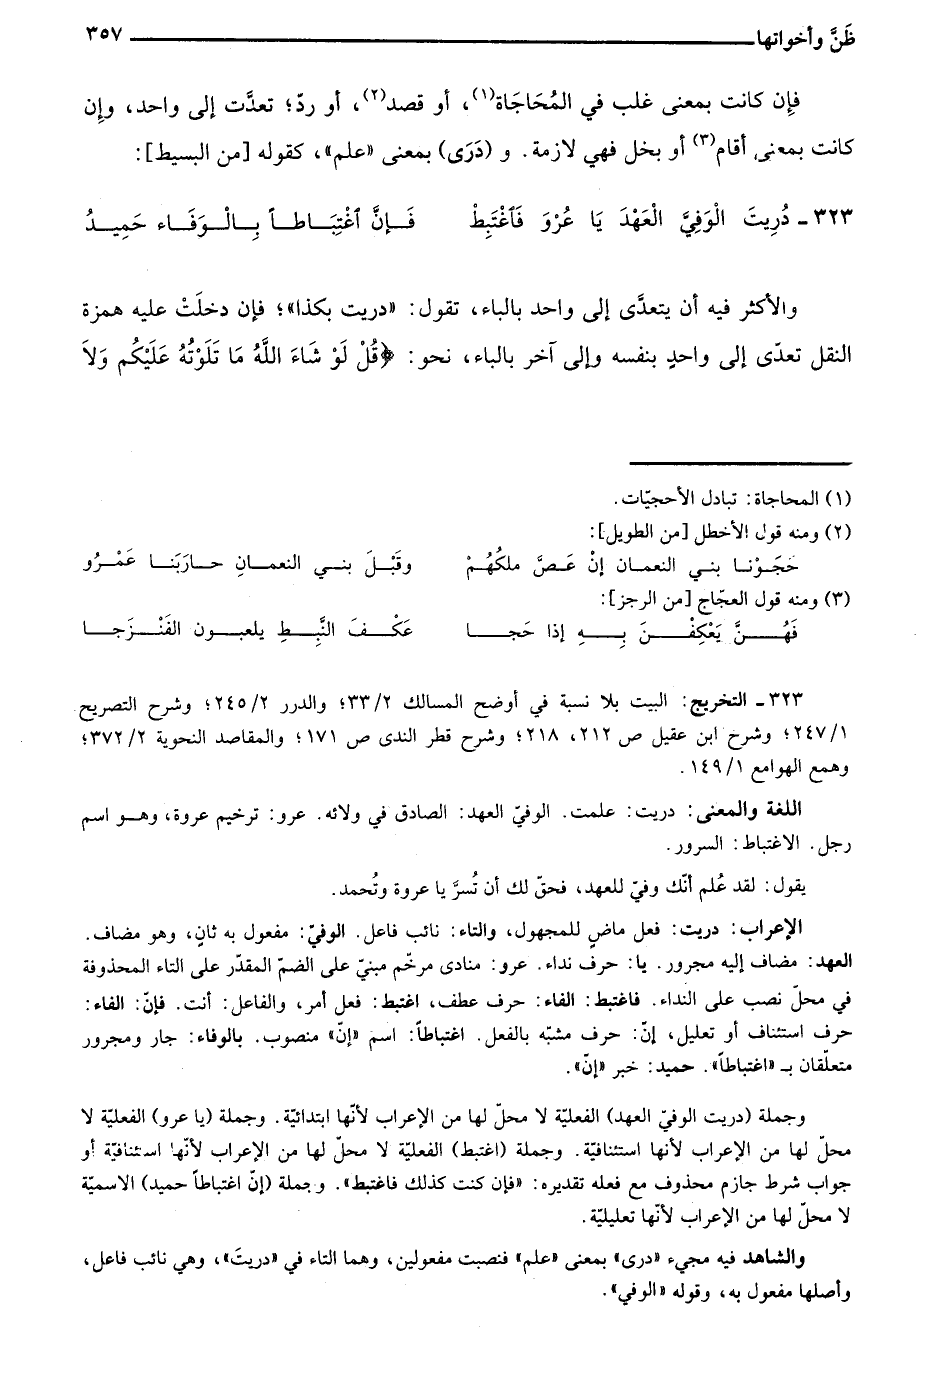 ظَنَّ وأخواتها ٣٥٧
فإِن كانت بمعنى غلب في المُحَاجَاة(١)، أو قصد(٢)، أو ردّ؛ تعدَّت إلى واحد، وإِن
كانت بمعنى أقام(٣) أو بخل فهي لازمة. و (دَرَى) بمعنى «علم»، كقوله [من البسيط]:
٣٢٣ - دُرِيتَ الْوَفِيَّ الْعَهْدَ يَا عُرْوَ فَٱغْتَبِطْ فَإِنَّ ٱغْتِبَاطاً بِالْوَفَاء حَمِيدُ
والأكثر فيه أن يتعدَّى إلى واحد بالباء، تقول: «دريت بكذا»؛ فإن دخلَتْ عليه همزة
النقل تعدّى إلى واحدٍ بنفسه وإلى آخر بالباء، نحو: ﴿قُلْ لَوْ شَاءَ اللَّهُ مَا تَلَوْتُهُ عَلَيْكُم وَلاَ
(١) المحاجاة: تبادل الأحجيّات.
(٢) ومنه قول الأخطل [من الطويل]:
حَجَوْنـا بنـي النعمـان إنْ عَـصَّ ملكُهُـمْ وقَبْـلَ بنـي النعمـانِ حـارَبَنـا عَمْـرُو
(٣) ومنه قول العجّاج [من الرجز]:
فَهُـنَّ يَعْكِفْـنَ بِـهِ إذا حَجـا عَكْـفَ النَّبِـطِ يلعبـون الفَنْـزَجـا
٣٢٣ - التخريج: البيت بلا نسبة في أوضح المسالك ٣٣/٢؛ والدرر ٢٤٥/٢؛ وشرح التصريح
٢٤٧/١؛ وشرح ابن عقيل ص ٢١٢، ٢١٨؛ وشرح قطر الندى ص ١٧١؛ والمقاصد النحوية ٣٧٢/٢؛
وهمع الهوامع ١٤٩/١.
اللغة والمعنى: دريت: علمت. الوفيّ العهد: الصادق في ولائه. عرو: ترخيم عروة، وهـو اسم
رجل. الاغتباط: السرور.
يقول: لقد عُلم أنّك وفيّ للعهد، فحقّ لك أن تُسرَّ يا عروة وتُحمد.
الإعراب: دريت: فعل ماضٍ للمجهول، والتاء: نائب فاعل. الوفيّ: مفعول به ثانٍ، وهو مضاف.
العهد: مضاف إليه مجرور. يا: حرف نداء. عرو: منادى مرخّم مبنيّ على الضمّ المقدّر على التاء المحذوفة
في محلّ نصب على النداء. فاغتبط: الفاء: حرف عطف، اغتبط: فعل أمر، والفاعل: أنت. فإنّ: الفاء:
حرف استئناف أو تعليل، إنّ: حرف مشبّه بالفعل. اغتباطاً: اسم «إنّ» منصوب. بالوفاء: جار ومجرور
متعلّقان بـ «اغتباطاً». حميد: خبر «إنّ».
وجملة (دريت الوفيّ العهد) الفعليّة لا محلّ لها من الإعراب لأنّها ابتدائيّة. وجملة (يا عرو) الفعليّة لا
محلّ لها من الإعراب لأنها استئنافيّة. وجملة (اغتبط) الفعليّة لا محلّ لها من الإعراب لأنّها استئنافيّة أو
جواب شرط جازم محذوف مع فعله تقديره: «فإن كنت كذلك فاغتبط». وجملة (إنّ اغتباطاً حميد) الاسميّة
لا محلّ لها من الإعراب لأنّها تعليليّة.
والشاهد فيه مجيء «درى» بمعنى «علم» فنصبت مفعولين، وهما التاء في «دريتَ»، وهي نائب فاعل،
وأصلها مفعول به، وقوله «الوفي».